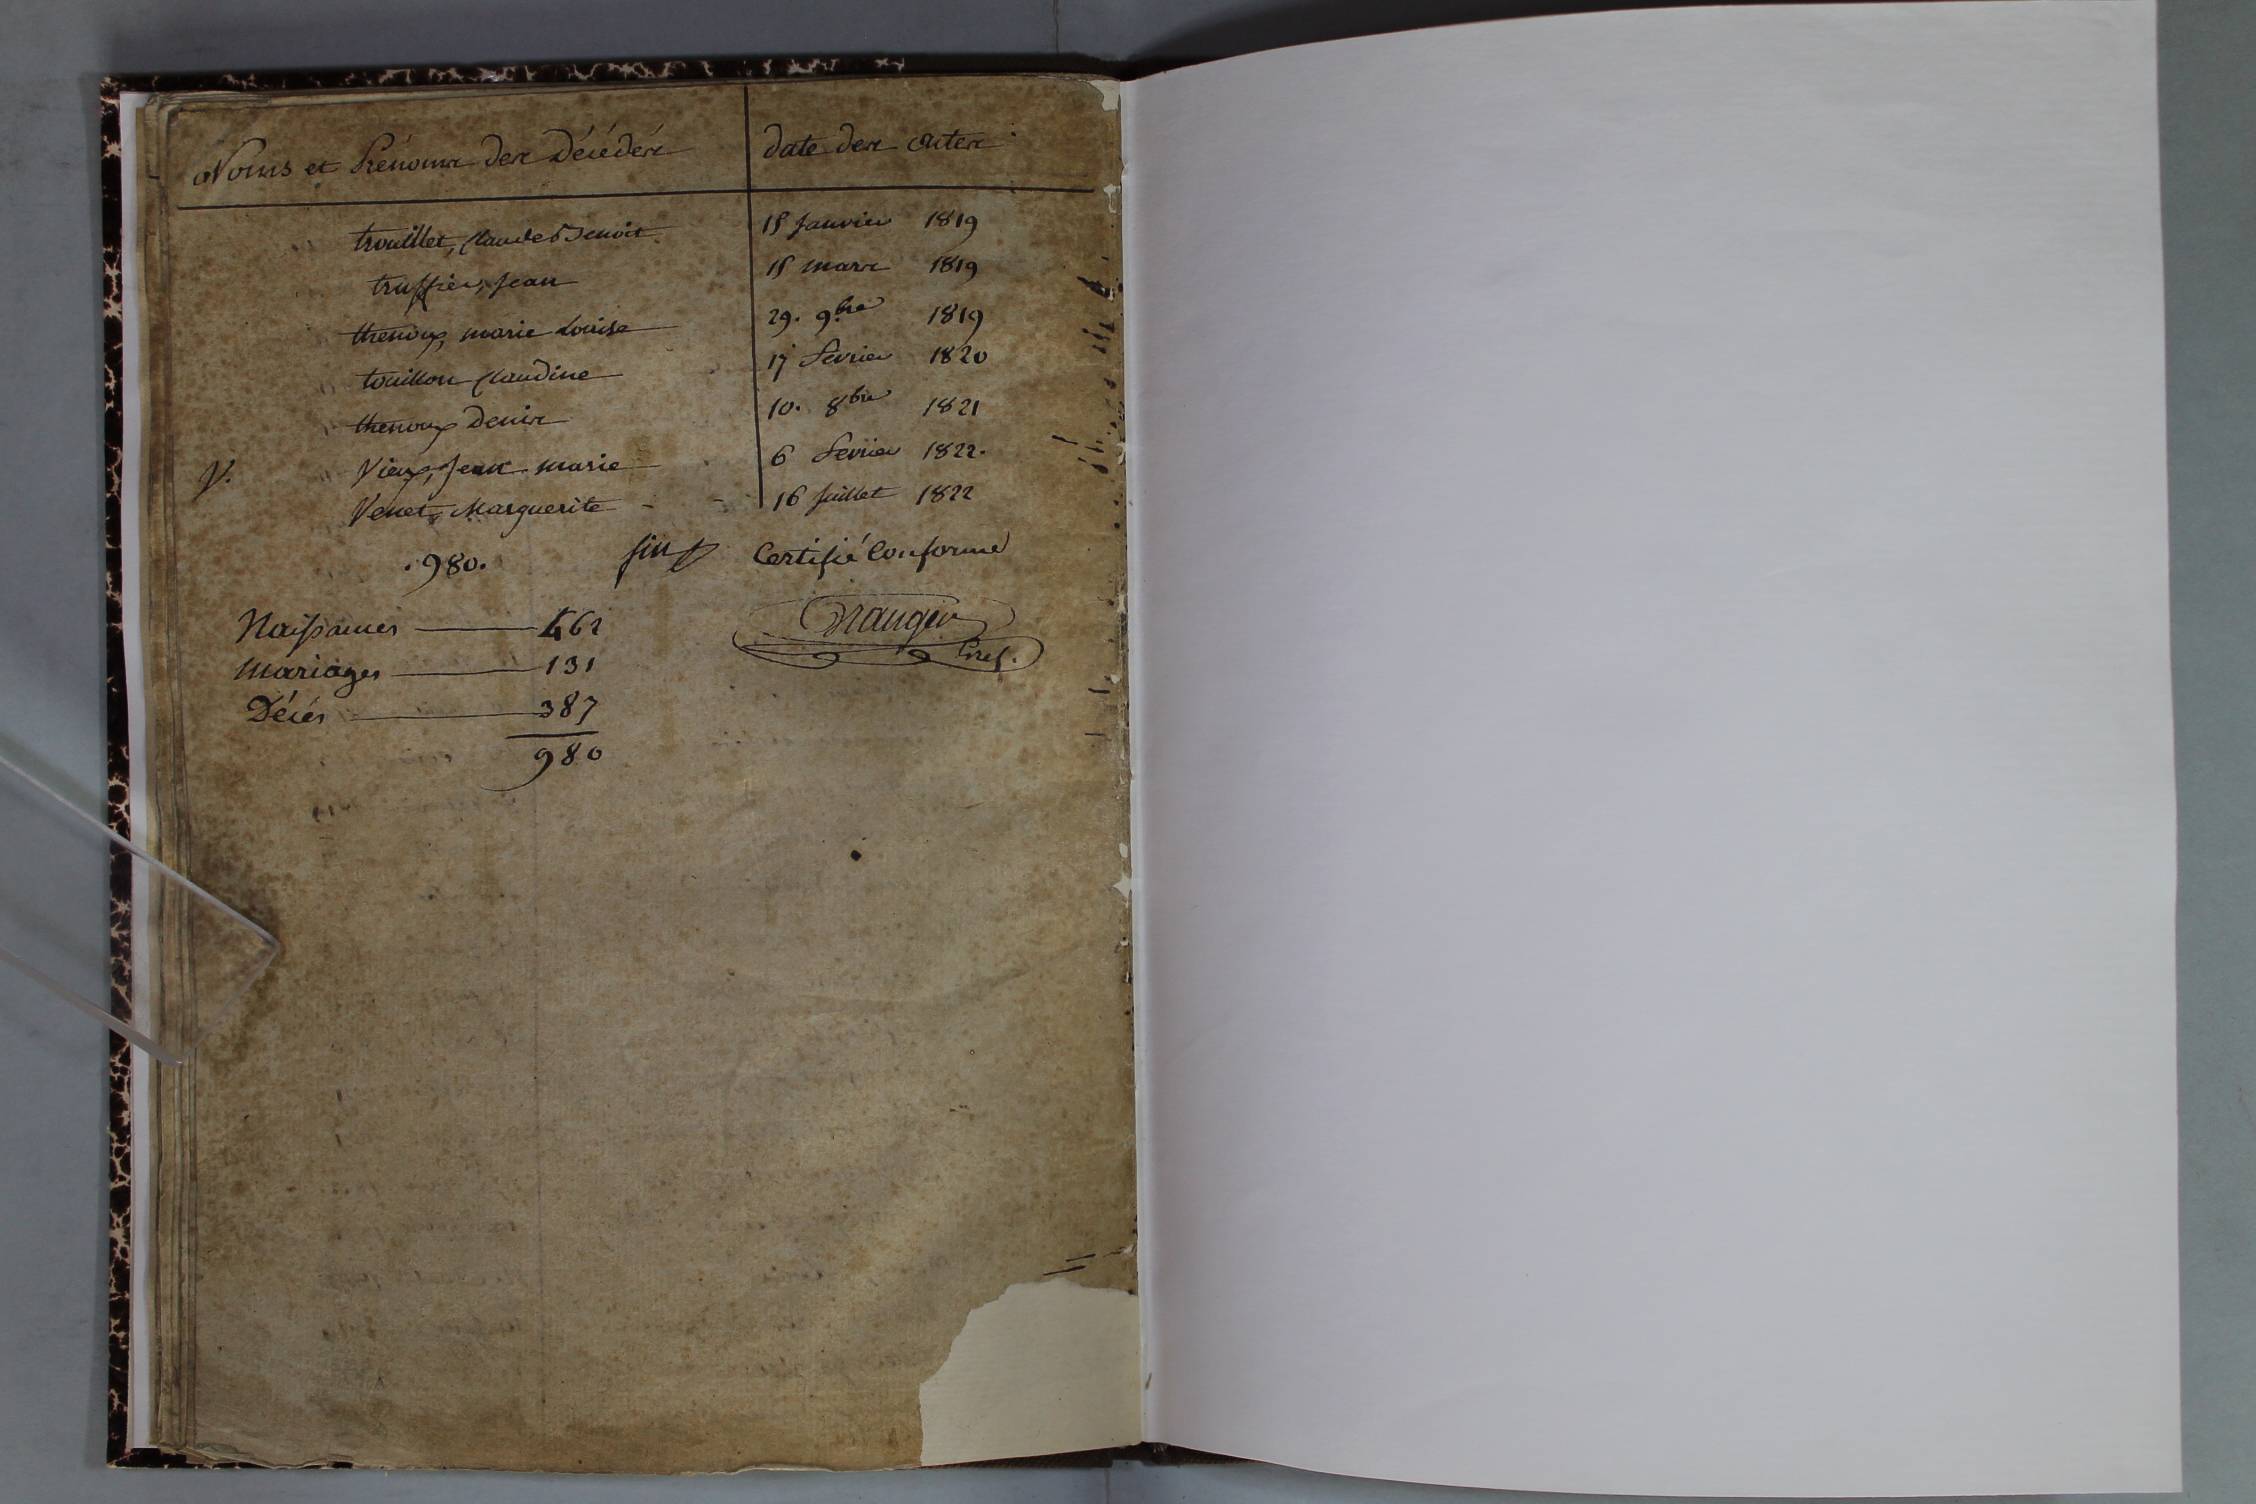 Noms et Prénoms des Décédés date des actes
trouillet, Claude Benoit 15 Janvier 1819
truffier, Jean 15 mars 1819
thenoux, marie Louise 29. 9bre 1819
touillon Claudine 17 fevrier 1820
thenoux Denis 10. 8bre 1821
V. Vieux, Jean marie 6 fevrier 1822.
Venet, Marguerite 16 Juillet 1822
.980. fin Certifié Conforme
Naissances 462
Mariages 131
Décés 387
980